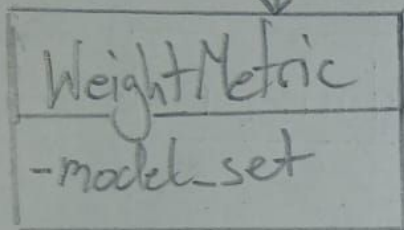 WeightMetric
-model_set